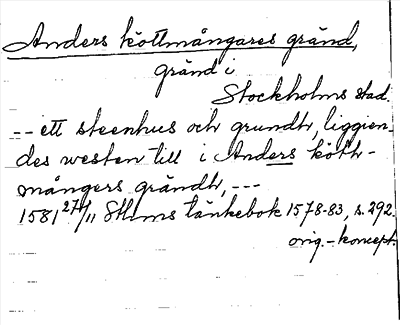 Anders köttmångares gränd,
gränd i
Stockholms stad.
-- ett steenhus och grundh, liggien-
des westen till i Anders kött-
mångers grändh, ---
1581 27/11 Sthms tänkebok 1578-83, s. 292.
orig.-koncept.